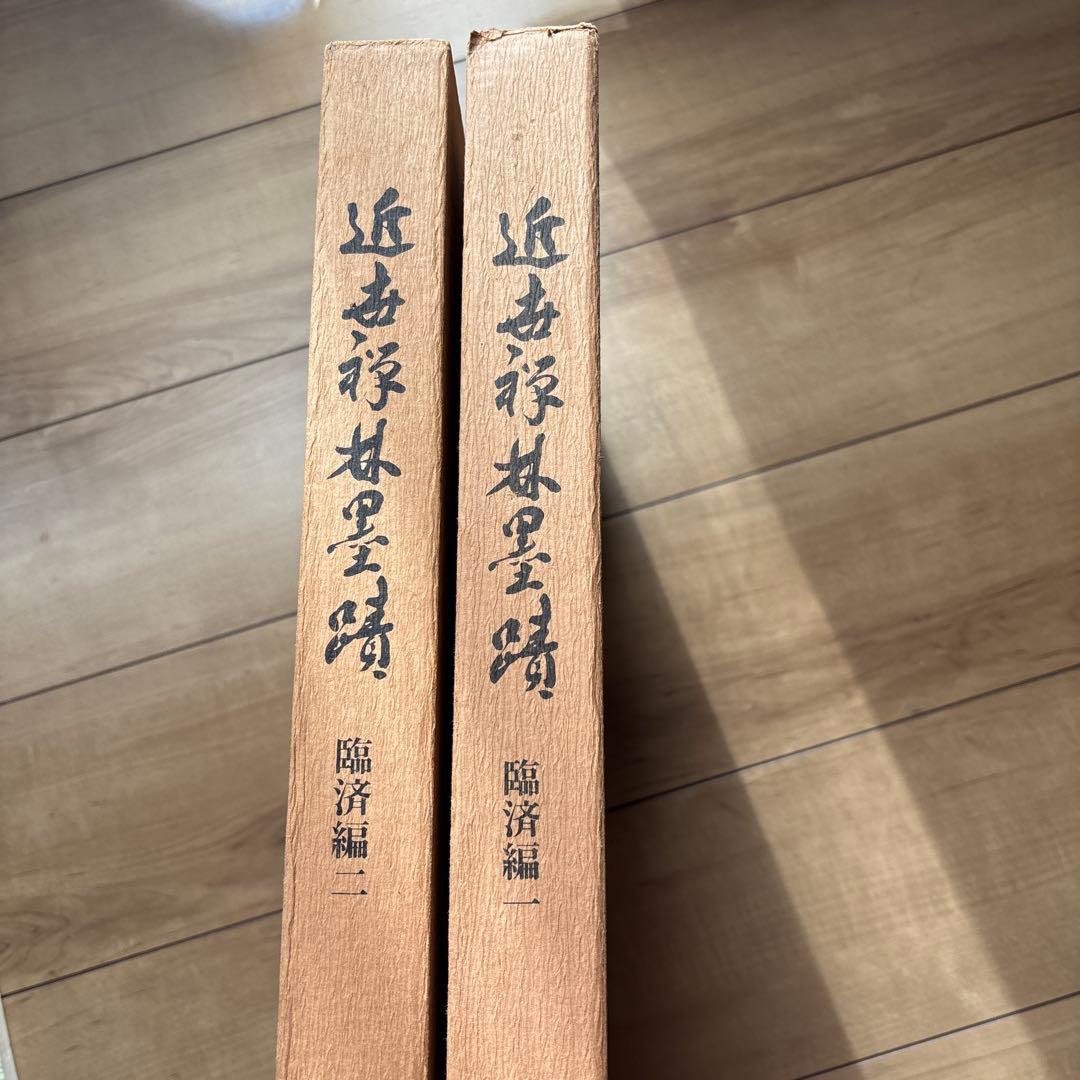 近世禅林墨蹟
臨済編一
近世禅林墨蹟
臨済編二